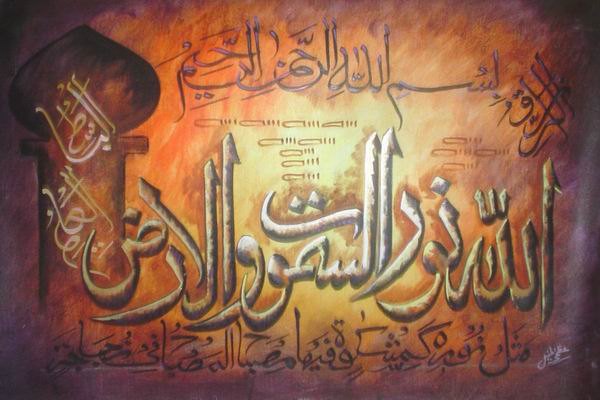 بسم الله الرحمن الرحيم
الله نور السموت والارض
مثل نوره كمشكوة فيها مصباح المصباح في زجاجة